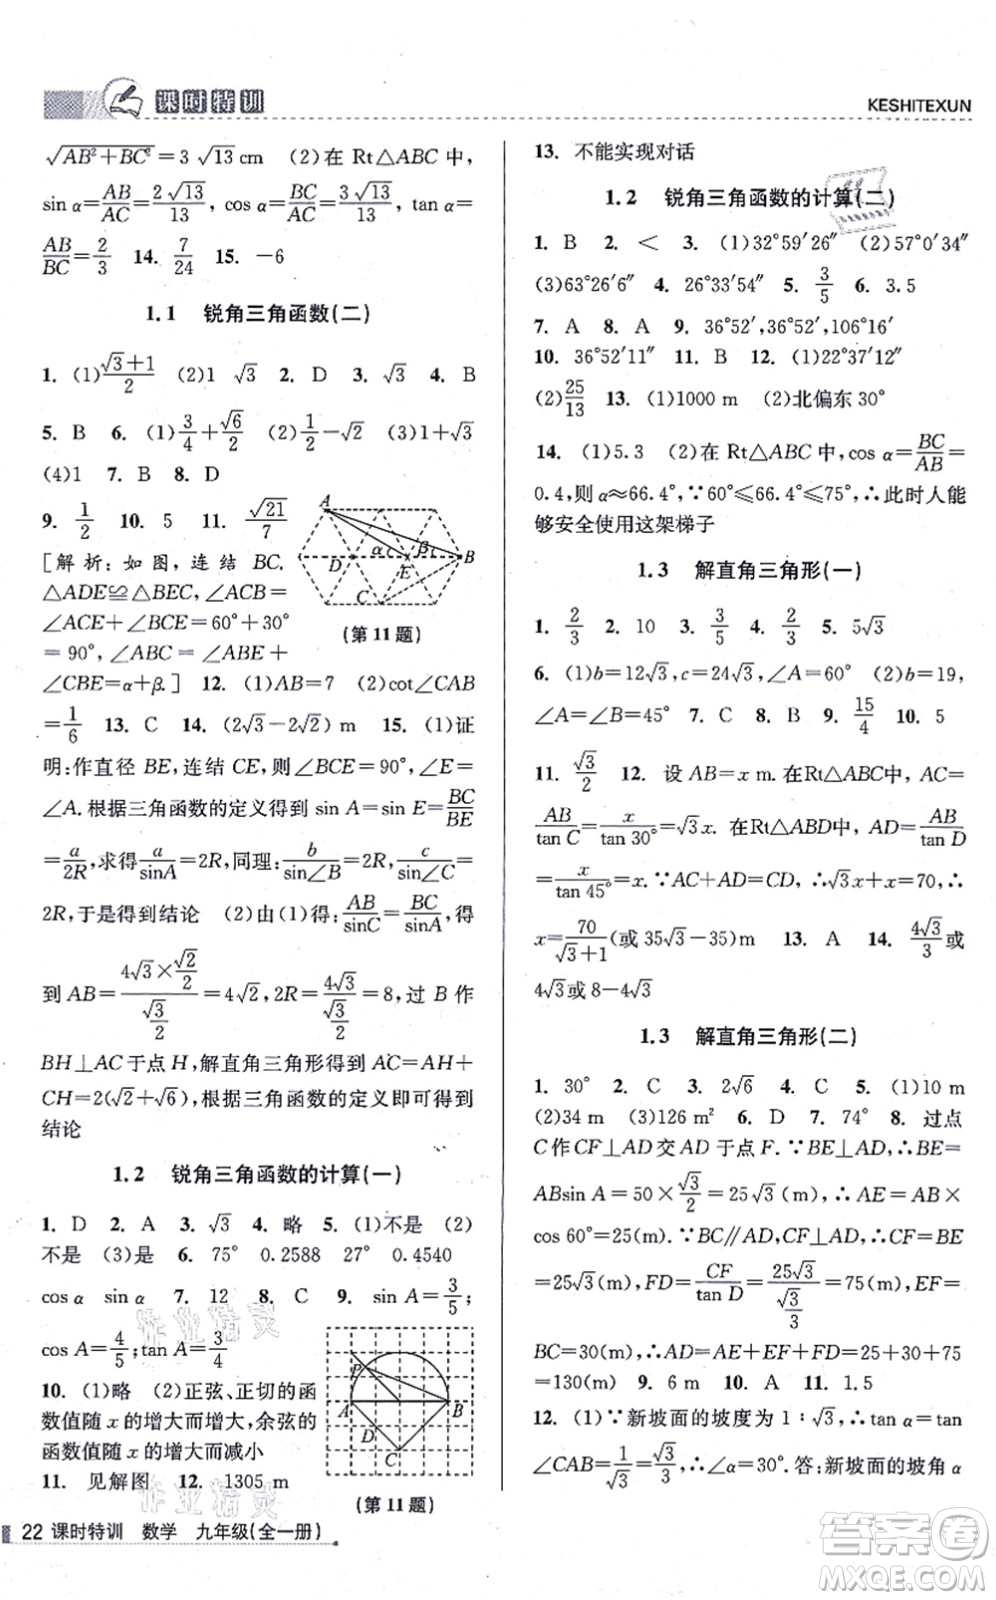 课时特训
KESHITEXUN
√(AB²+BC²)=3√13 cm (2)在 Rt△ABC 中,
sin α=AB/AC=2√13/13, cos α=BC/AC=3√13/13, tan α=
AB/BC=2/3 14. 7/24 15. −6
1.1 锐角三角函数(二)
1. (1)(√3+1)/2 (2)1 √3 2. D 3. √3 4. B
5. B 6. (1)3/4+√6/2 (2)1/2−√2 (3)1+√3
(4)1 7. B 8. D
9. 1/2 10. 5 11. √21/7
[解析:如图,连结 BC,
△ADE≌△BEC, ∠ACB=
∠ACE+∠BCE=60°+30°
=90°, ∠ABC=∠ABE+
∠CBE=α+β.] 12. (1)AB=7 (2)cot∠CAB
A
α
D
E
B
C
(第11题)
=1/6 13. C 14. (2√3−2√2) m 15. (1)证
明:作直径 BE,连结 CE,则∠BCE=90°,∠E=
∠A.根据三角函数的定义得到 sin A=sin E=BC/BE
=a/2R,求得a/sinA=2R,同理:b/sin∠B=2R,c/sin∠C=
2R,于是得到结论 (2)由(1)得:AB/sinC=BC/sinA,得
到 AB=(4√3×√2/2)/(√3/2)=4√2,2R=4√3/(√3/2)=8,过 B 作
BH⊥AC于点 H,解直角三角形得到 AC=AH+
CH=2(√2+√6),根据三角函数的定义即可得到
结论
1.2 锐角三角函数的计算(一)
1. D 2. A 3. √3 4. 略 5. (1)不是 (2)
不是 (3)是 6. 75° 0.2588 27° 0.4540
cos α sin α 7. 12 8. C 9. sin A=3/5;
cos A=4/5;tan A=3/4
10. (1)略 (2)正弦、正切的函
数值随 x 的增大而增大,余弦的
函数值随 x 的增大而减小
11. 见解图 12. 1305 m
P
A
B
D
C
(第11题)
22 课时特训 数学 九年级(全一册)
13. 不能实现对话
1.2 锐角三角函数的计算(二)
1. B 2. < 3. (1)32°59′26″ (2)57°0′34″
(3)63°26′6″ 4. 26°33′54″ 5. 3/5 6. 3.5
7. A 8. A 9. 36°52′,36°52′,106°16′
10. 36°52′11″ 11. B 12. (1)22°37′12″
(2)25/13 13. (1)1000 m (2)北偏东30°
14. (1)5.3 (2)在 Rt△ABC 中,cos α=BC/AB=
0.4,则 α≈66.4°,∵60°≤66.4°≤75°,∴此时人能
够安全使用这架梯子
1.3 解直角三角形(一)
1. 2/3 2. 10 3. 3/5 4. 2/3 5. 5√3
6. (1)b=12√3,c=24√3,∠A=60° (2)b=19,
∠A=∠B=45° 7. C 8. B 9. 15/4 10. 5
11. √3/2 12. 设 AB=x m.在Rt△ABC中,AC=
AB/tan C=x/tan 30°=√3x. 在Rt△ABD中,AD=AB/tan D
=x/tan 45°=x.∵AC+AD=CD,∴√3x+x=70,∴
x=70/(√3+1)(或 35√3−35)m 13. A 14. 4√3/3或
4√3或 8−4√3
1.3 解直角三角形(二)
1. 30° 2. C 3. 2√6 4. C 5. (1)10 m
(2)34 m (3)126 m² 6. D 7. 74° 8. 过点
C 作 CF⊥AD 交 AD 于点 F.∵BE⊥AD,∴BE=
ABsin A=50×√3/2=25√3(m),∴AE=AB×
cos 60°=25(m).∵BC∥AD,CF⊥AD,∴CF=BE
=25√3(m),FD=CF/tan D=25√3/(√3/3)=75(m),EF=
BC=30(m).∴AD=AE+EF+FD=25+30+75
=130(m) 9. 6 m 10. A 11. 1.5
12. (1)∵新坡面的坡度为 1∶√3,∴tan α=tan
∠CAB=1/√3=√3/3,∴∠α=30°.答:新坡面的坡角 α
作业精灵
作业精灵
答案圈
MXQE.COM